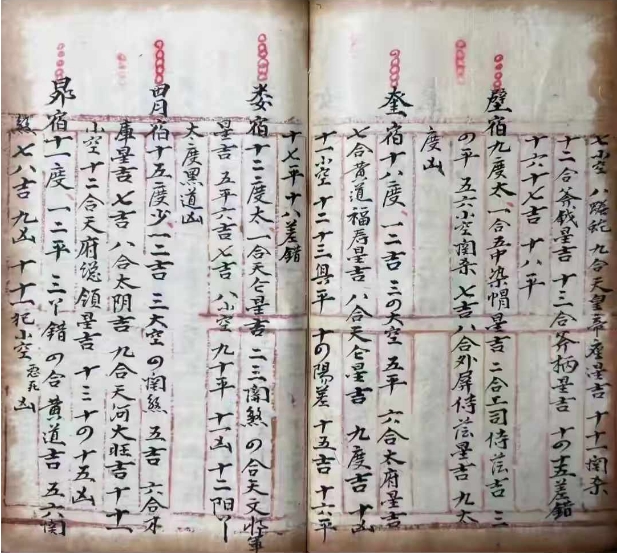 七小空 八騰蛇 九合天皇帝座星吉 十十一関杀
十二合斧鉞星吉 十三合斧柄星吉 十の十五差錯
十六十七吉 十八平
壁宿九度太 一合五中染帽星吉 二合上司侍蓝吉 三
の平 五六小空関杀 七吉 八合外屏侍蓝星吉 九太
度凶
奎宿十八度 一二吉 三の大空 五平 六合太府星吉
七合黄道福辱星吉 八合天仓星吉 九度吉 十凶
十一小空 十二十三具平 十の陽差 十五吉 十六平
十七平 十八差錯
娄宿十二度太 一合天仓星吉 二三関煞 の合天文
星吉 五平 六吉 七吉 八小空 九十平 十一凶 十二阳
太度黑道凶
胃宿十五度少 一二吉 三大空 の関煞 五吉 六合
庫星吉 七吉 八合太阴吉 九合天河大旺吉 十十一
小空 十二合天府總領星吉 十三十の十五凶
昴宿十一度 一二平 三丫錯 の合黄道吉 五六関
煞 七八吉 九凶 十十一犯小空 凶